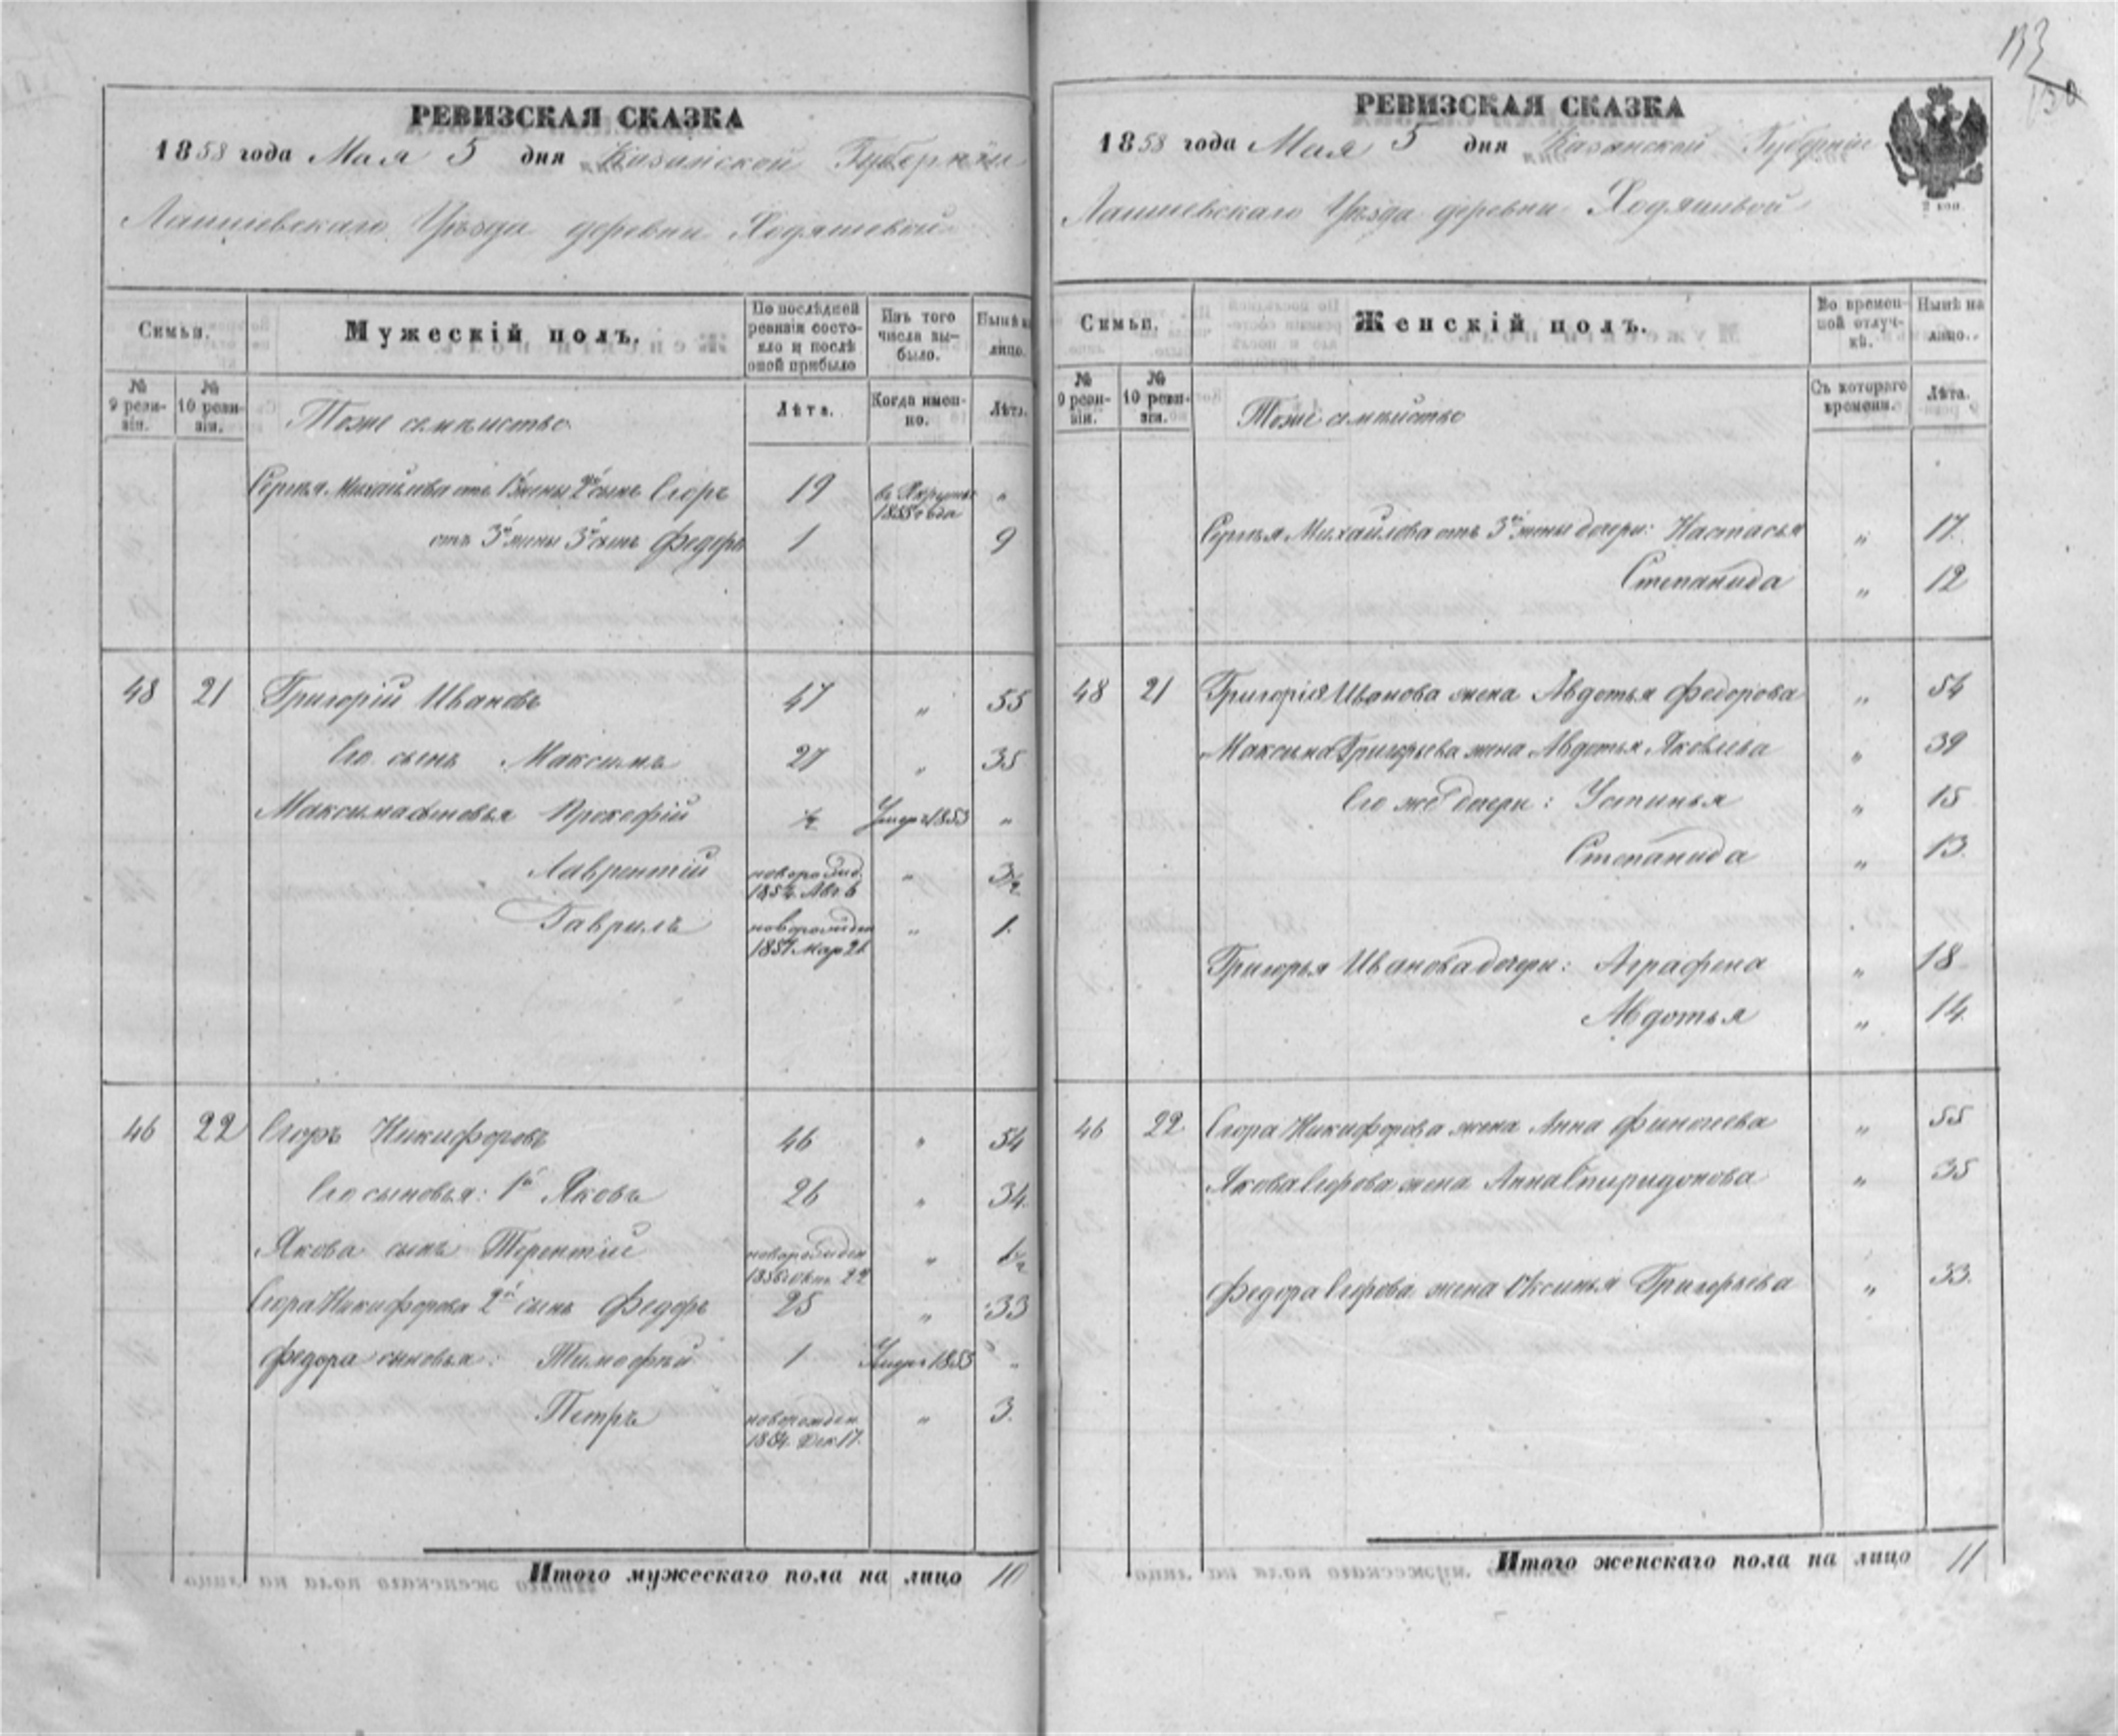 133
130
РЕВИЗСКАЯ СКАЗКА
1858 года Мая 5 дня Казанской Губернiи
Лаишевскаго Уѣзда деревни Ходяшевой
Семьи. Мужескiй полъ. По послѣдней ревизiи состояло и послѣ оной прибыло Изъ того числа выбыло. Нынѣ на лицо.
№ 9 ревизiи. № 10 ревизiи. Лѣта. Когда именно. Лѣта.
Тоже семѣйство
Сергѣя Михайлова отъ 1й жены 2й сынъ Егоръ 19 въ 1855 года "
отъ 3й жены 3й сынъ Федоръ 1 9
48 21 Григорiй Ивановъ 47 " 55
Его сынъ Максимъ 27 " 35
Максима сыновья Прокофiй 1/2 Умеръ 1853 "
Лаврентiй новорожд. 1854. Авг. 6 " 3 1/2
Гаврилъ новорожден 1857 Мар 21 " 1.
46 22 Егоръ Никифоровъ 46 " 54
Его сыновья: 1й Яковъ 26 " 34.
Якова сынъ Терентiй новорожден 1856 Окт. 22 " 1 1/2
Егора Никифорова 2й сынъ Федоръ 25 " 33
Федора сыновья: Тимофѣй 1 Умеръ 1853 "
Петръ новорожден. 1854. Дек 17. " 3.
Итого мужескаго пола на лицо 10
РЕВИЗСКАЯ СКАЗКА
1858 года Мая 5 дня Казанской Губернiи
2 коп.
Лаишевскаго Уѣзда деревни Ходяшевой
Семьи. Женскiй полъ. Во временной отлучкѣ. Нынѣ на лицо.
№ 9 ревизiи. № 10 ревизiи. Съ котораго времени. Лѣта.
Тоже семѣйство
Сергѣя Михайлова отъ 3й жены дочери: Настасья " 17.
Степанида " 12
48 21 Григорiя Иванова жена Авдотья Федорова " 54
Максима Григорьева жена Авдотья Яковлева " 39
Его же дочери: Устинья " 15
Степанида " 13.
Григорья Иванова дочери: Аграфена " 18
Авдотья " 14.
46 22. Егора Никифорова жена Анна Финогеева " 55
Якова Егорова жена Анна Спиридонова " 35
Федора Егорова жена Аксинья Григорьева " 33.
Итого женскаго пола на лицо 11